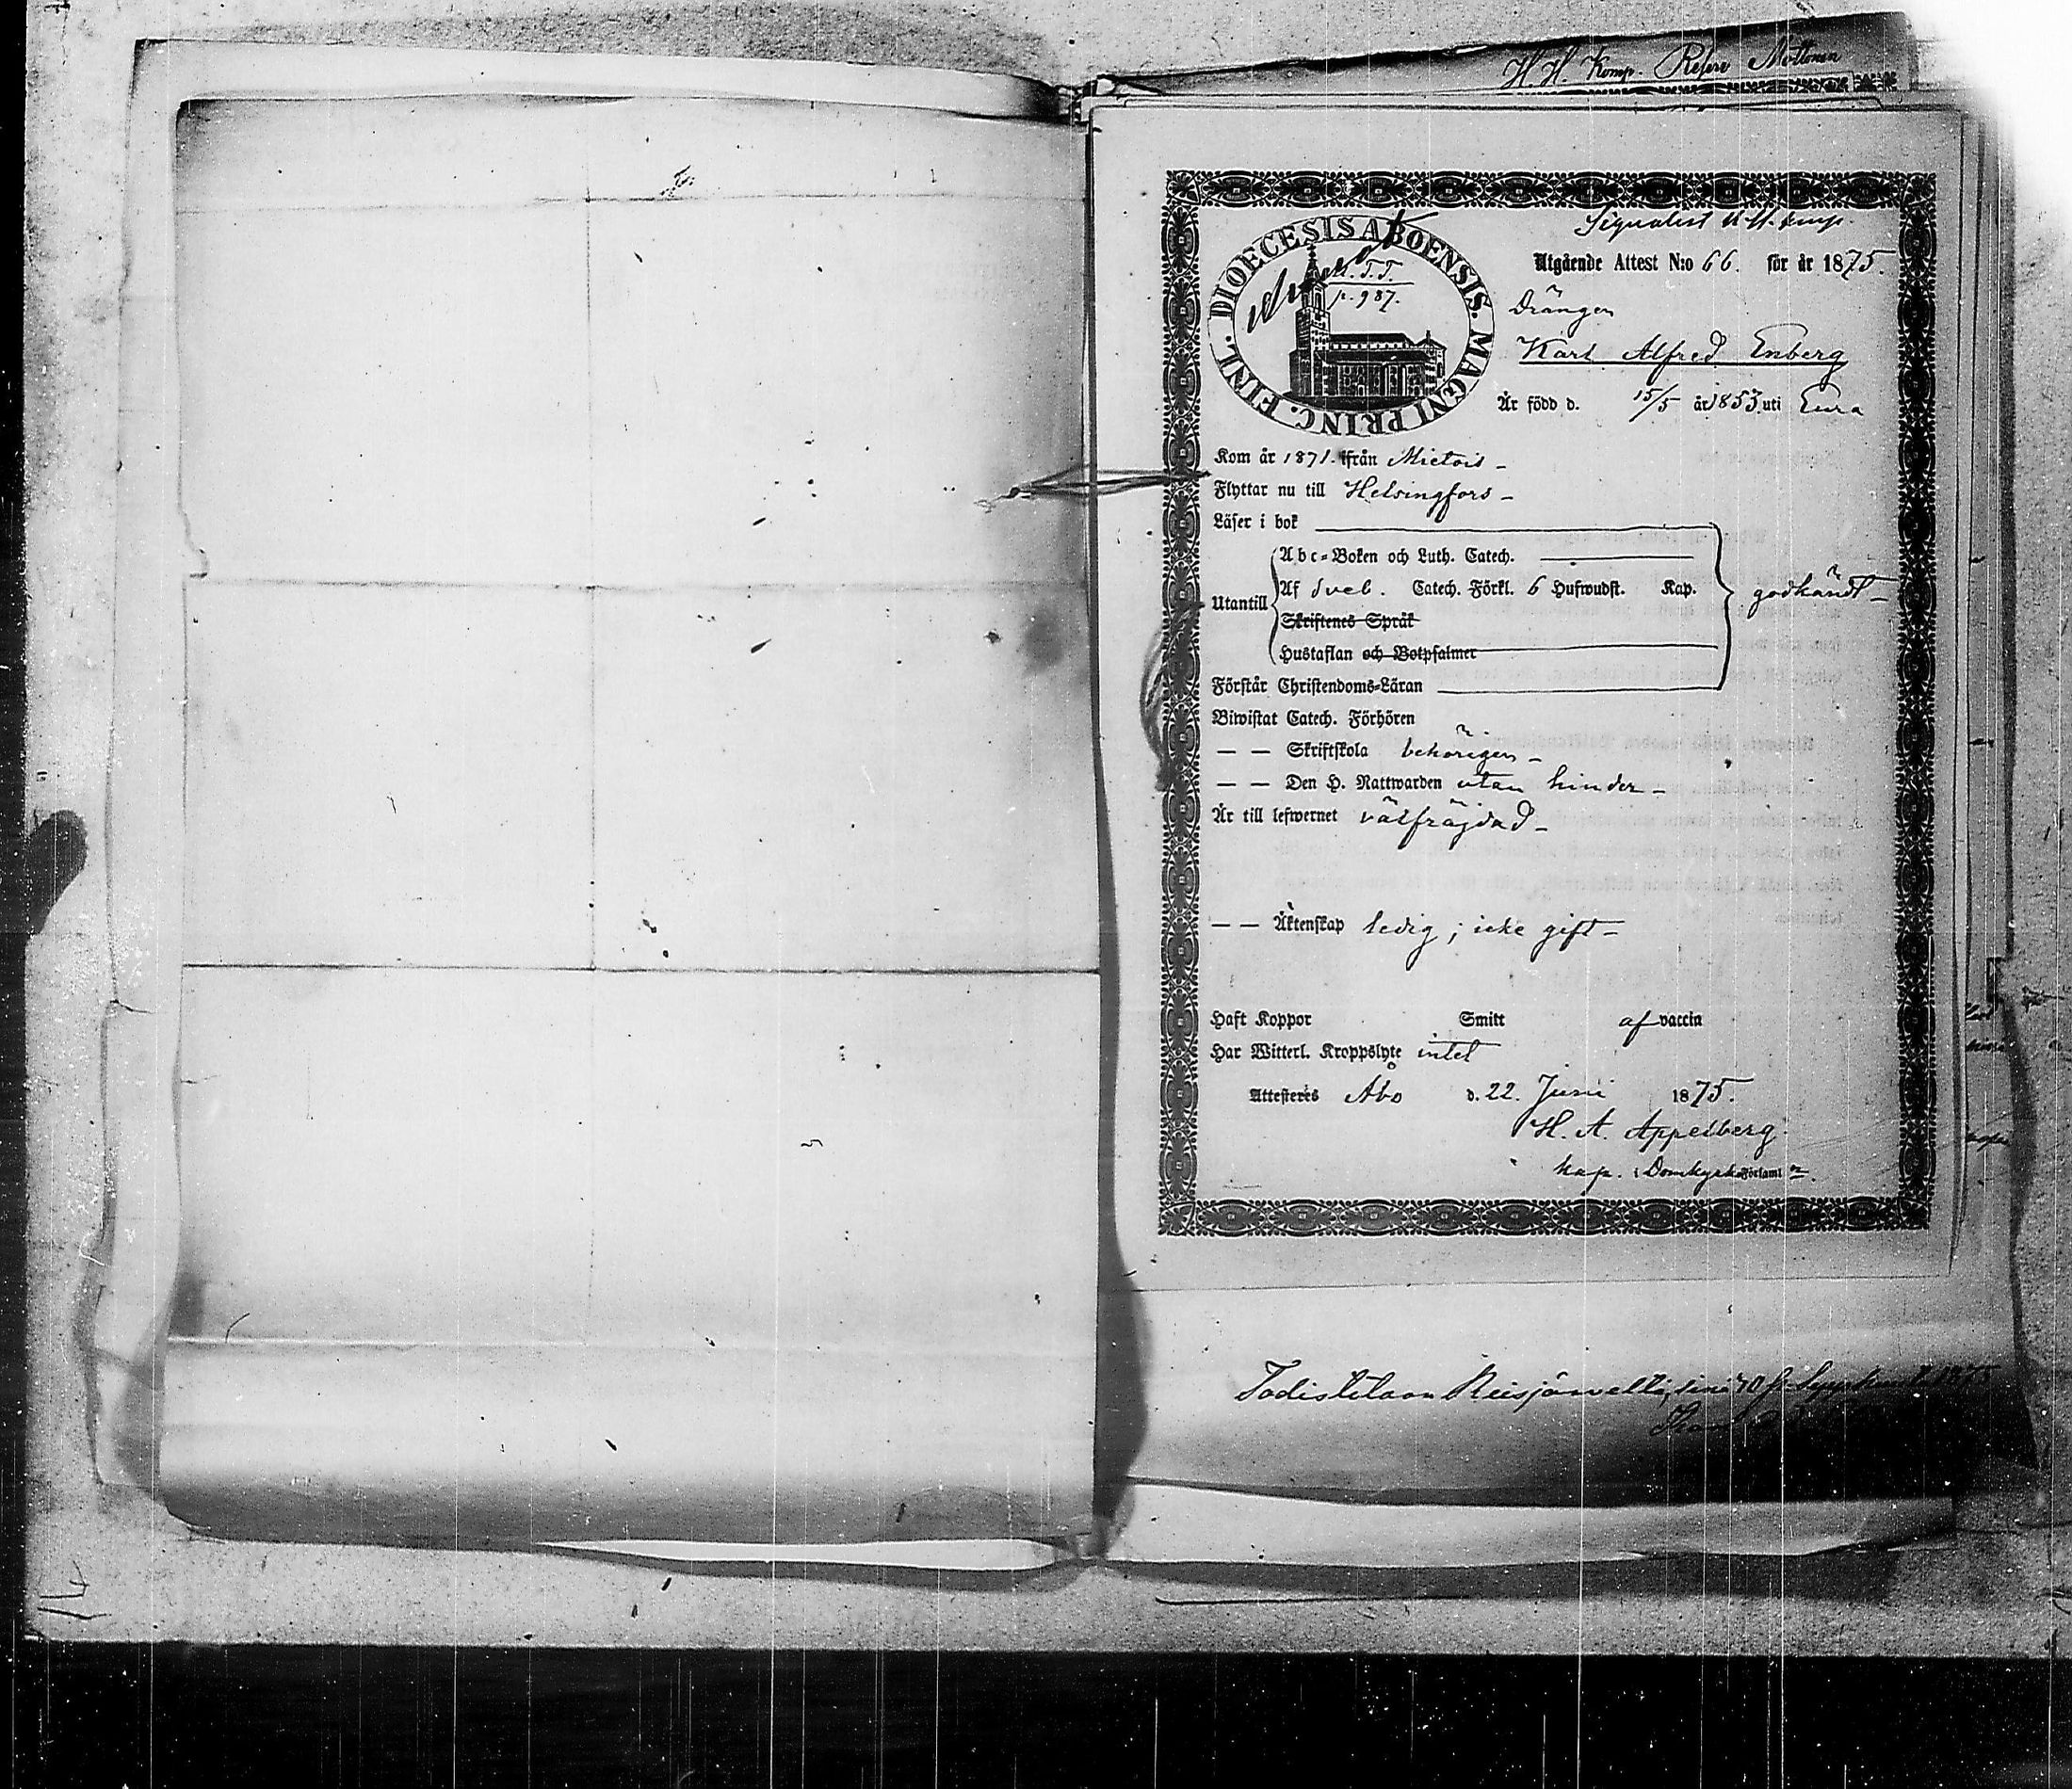 H. H. Komp. Reserv Möttönen
Signalist H. H. komp.
DIOECESIS ABOENSIS. MAGNI PRINC. FINL.
T. T.
p. 987.
Utgående Attest N:o 66. för år 1875.
Drängen
Karl Alfred Enberg
Är född d. 15/5 år 1853. uti Eura
Kom år 1871. ifrån Mietois –
Flyttar nu till Helsingfors –
Läser i bok
Abc-Boken och Luth. Catech.
Utantill Af Sveb. Catech. Förkl. 6 Hufwudst. Kap. godkändt –
Skriftenes Språk
Hustaflan och Botpsalmer
Förstår Christendoms-Läran
Biwistat Catech. Förhören
— — Skriftskola behörigen –
— — Den H. Nattwarden utan hinder –
Är till lefwernet välfräjdad –
— — Äktenskap ledig; icke gift –
Haft Koppor Smitt af vaccin
Har Witterl. Kroppslyte intet
Attesteres Åbo d. 22. Juni 1875.
H. A. Appelberg.
kap. i Domkyrko Förlaml n.
Todistetaan Reisjärweltä, 1875